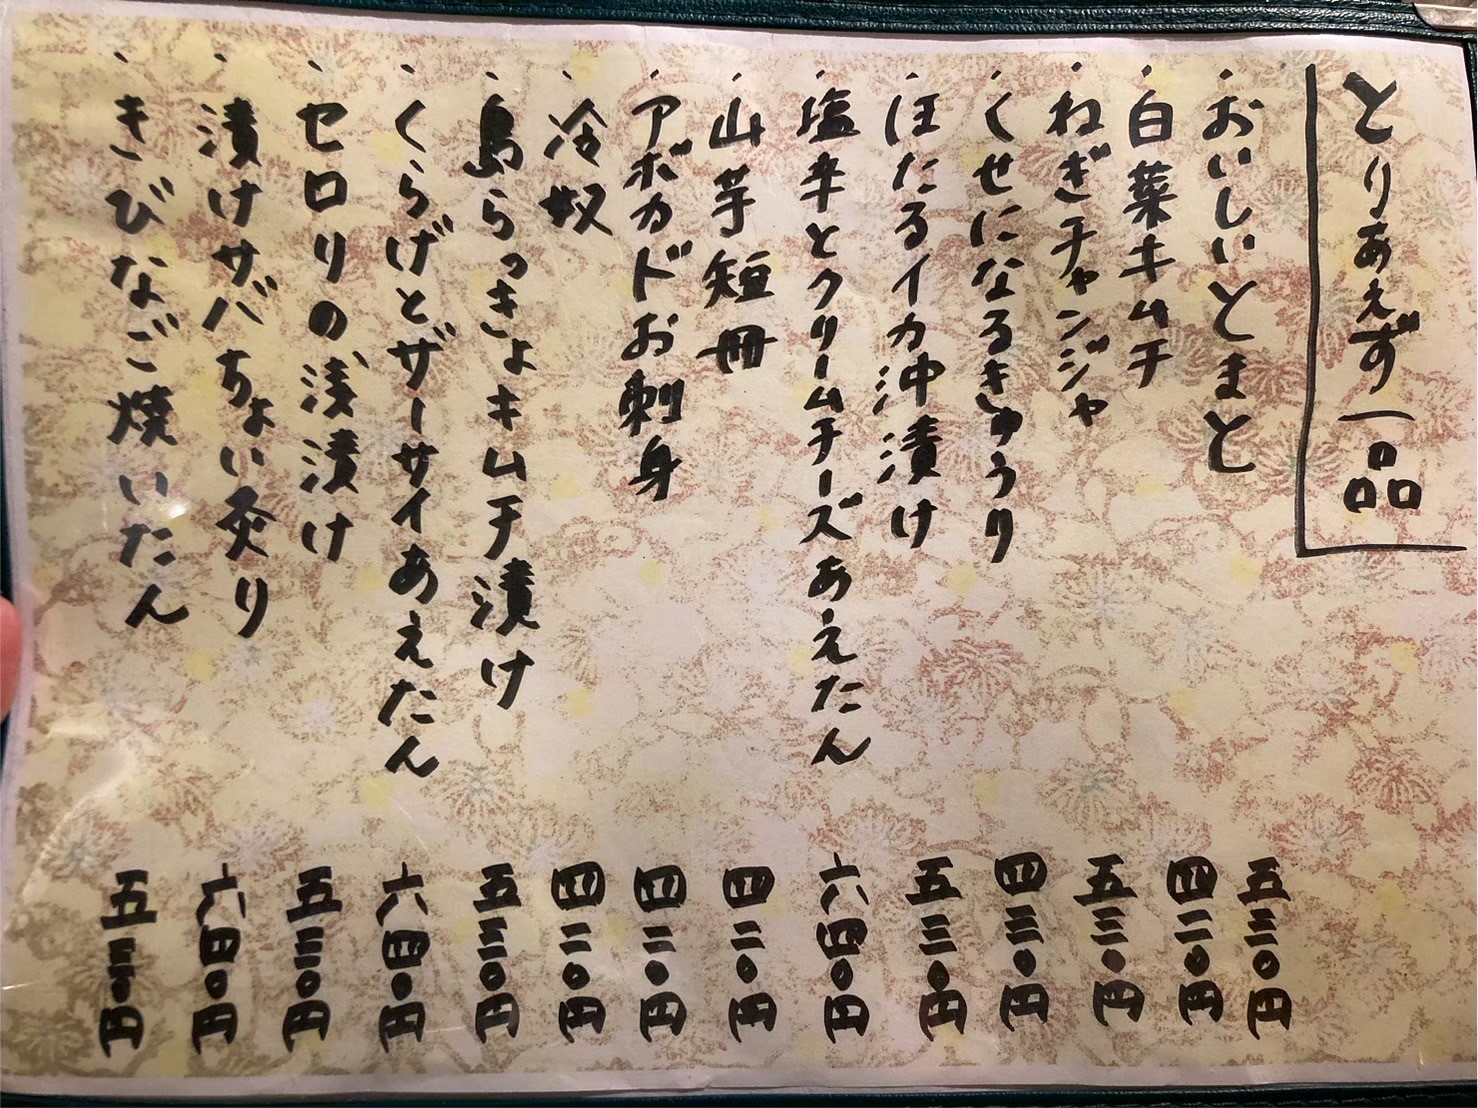 とりあえず一品
・おいしいとまと 五三〇円
・白菜キムチ 四二〇円
・ねぎチャンジャ 五三〇円
・くせになるきゅうり 四三〇円
・ほたるイカ沖漬け 五三〇円
・塩辛とクリームチーズあえたん 六四〇円
・山芋短冊 四二〇円
・アボカドお刺身 四二〇円
・冷奴 四二〇円
・島らっきょキムチ漬け 五三〇円
・くらげとザーサイあえたん 六四〇円
・セロリの浅漬け 五三〇円
・漬けサバちょい炙り 六四〇円
・きびなご焼いたん 五三〇円